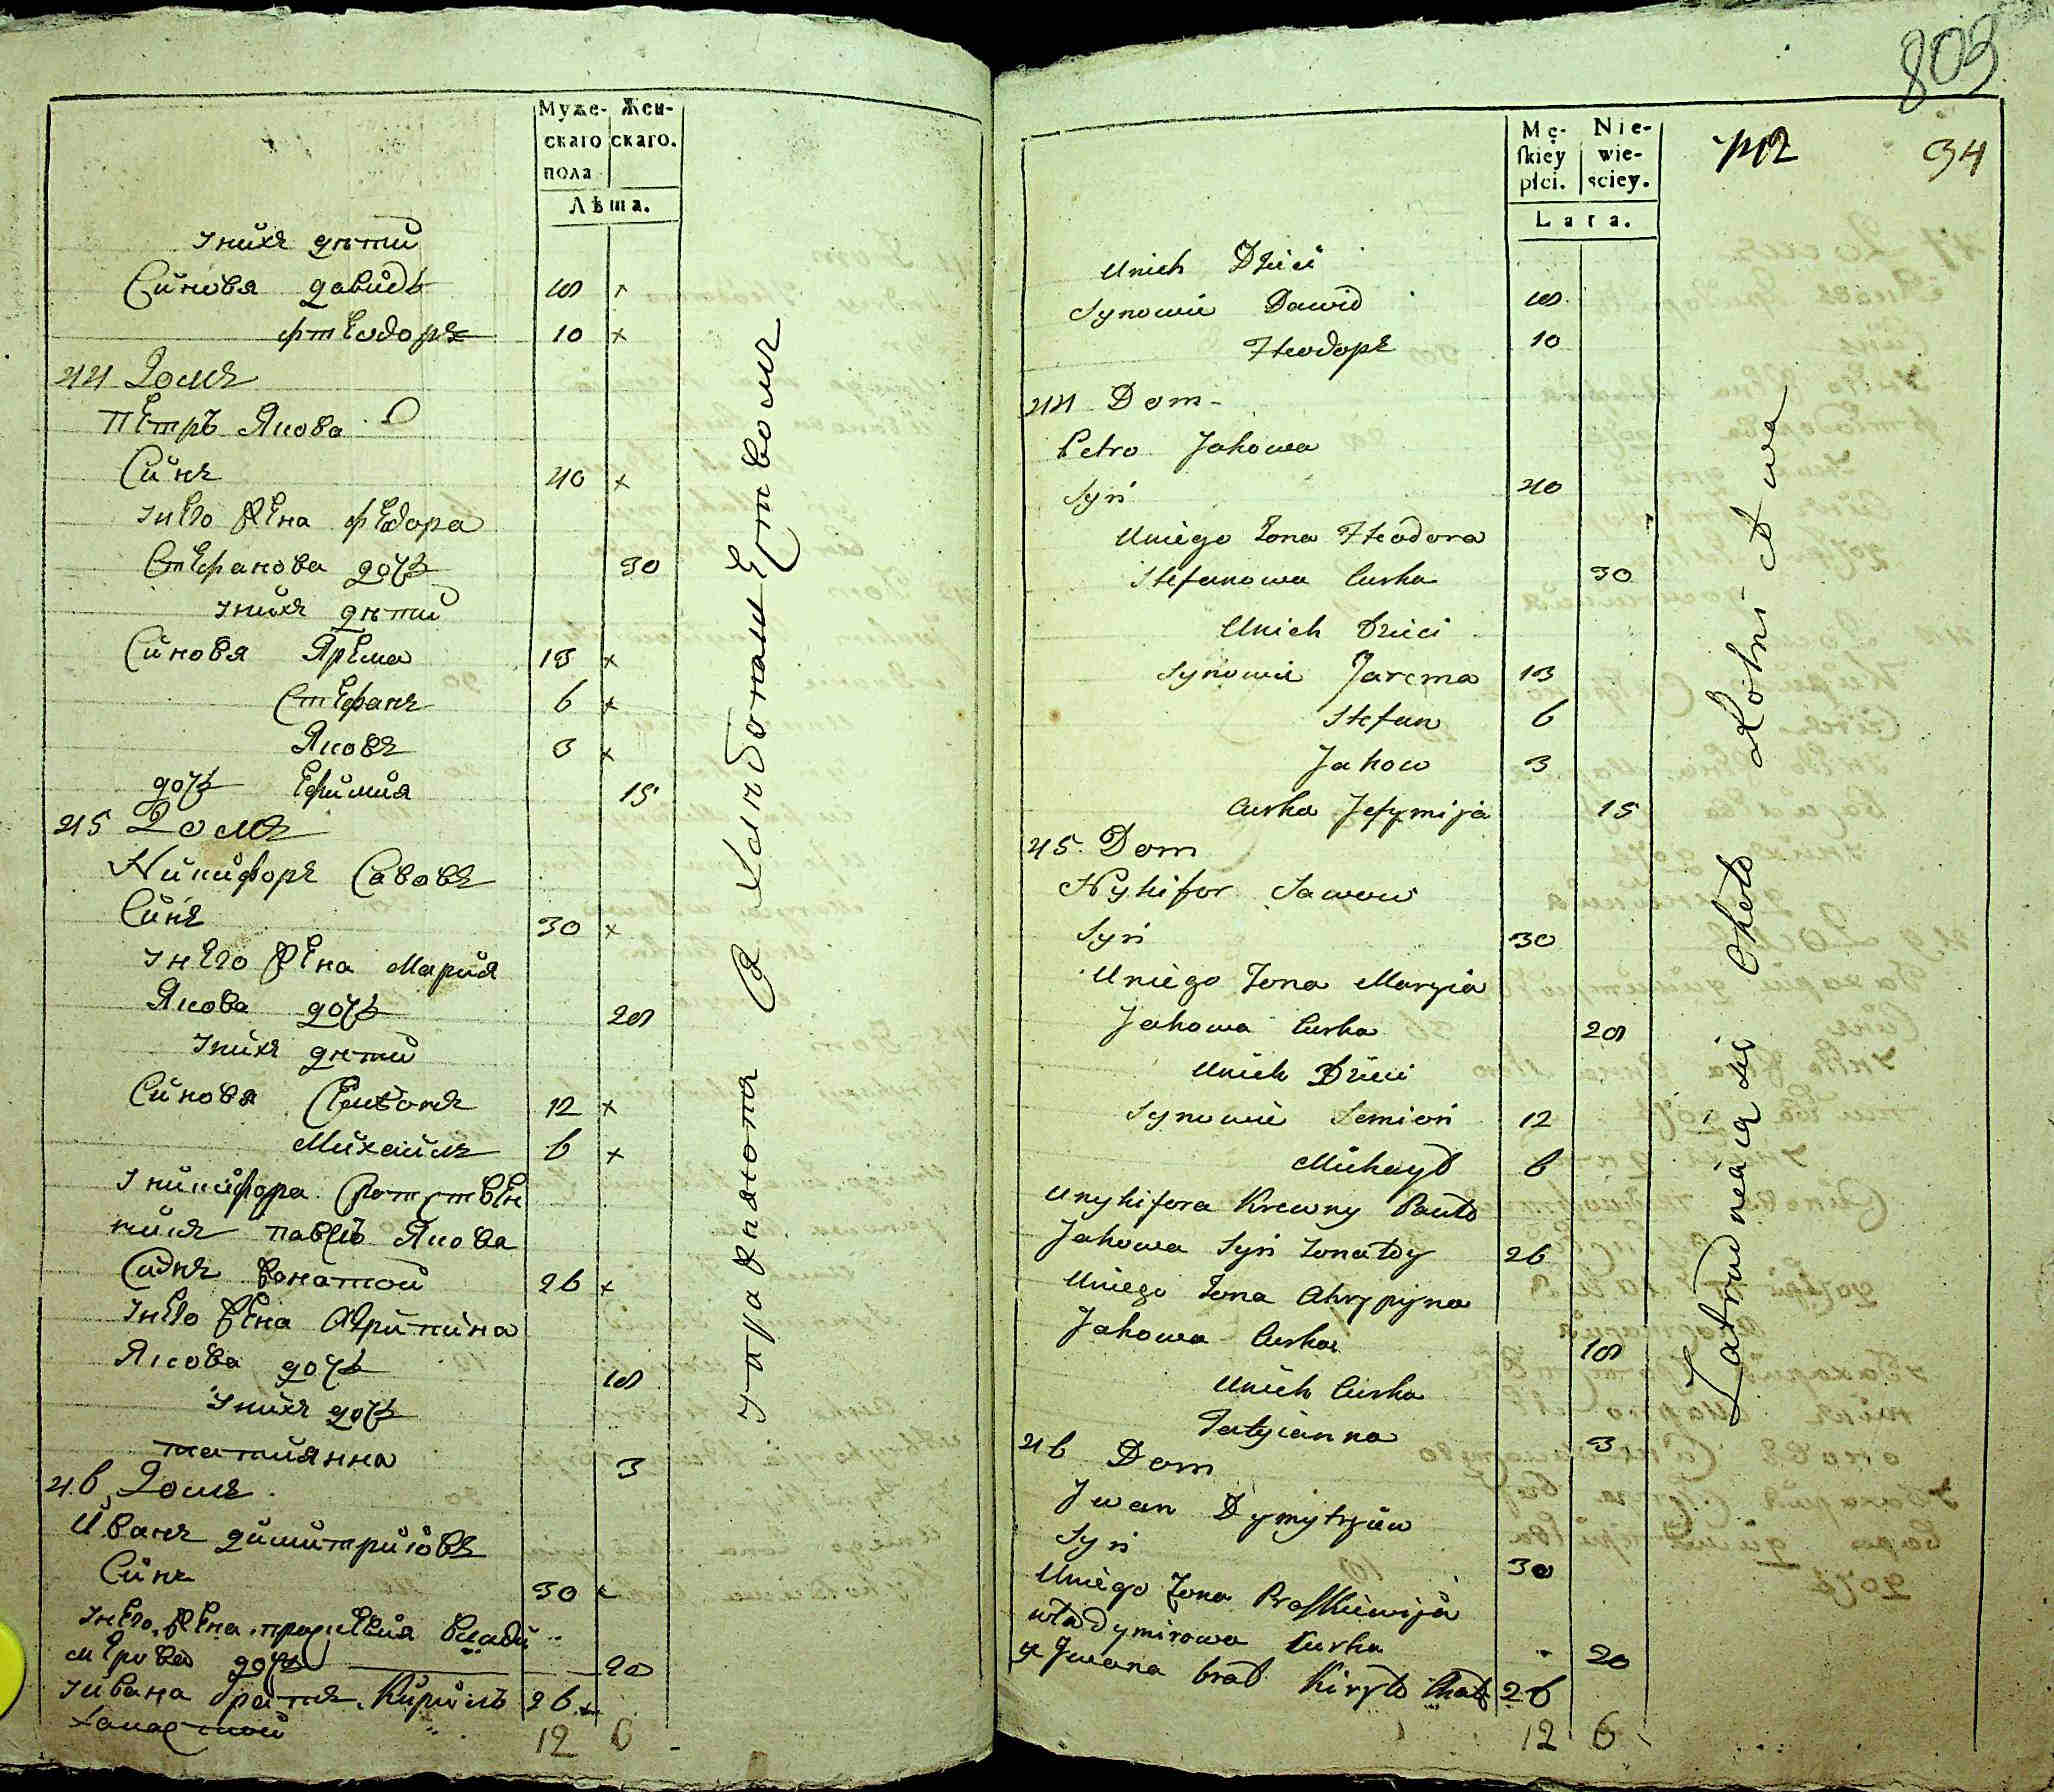 Муже- Жен-
скаго скаго.
пола
Лѣта.
Унихъ дѣти
Синовя давидъ 18
фтеодоръ 10 х
44 Домъ
Петръ Якова
Синъ 40 х
Унего жена федора
Стефанова дочь 30
Унихъ дѣти
Синовя Ярема 13 х
Стефанъ 6 х
Яковъ 3 х
дочь Ефимия 15
45 Домъ
Никифоръ Савовъ
Синъ 30 х
Унего жена Мария
Якова дочь 28
Унихъ дѣти
Синовя Семионъ 12 х
Михаилъ 6 х
Уникифора Сротствен
никъ павелъ Якова
Синъ жонатой 26 х
Унего жена Агрипина
Якова дочь 18
Унихъ дочь
татиянна 3
46 Домъ
Иванъ димитриювъ
Синъ 30
Унего жена праскевия влади
мерова дочь 20
Уивана братъ Кирилъ 26
холостой
12 6
Упражняются Хлебопашествомъ
803
34
Mę- Nie-
skiey wie-
płci. sciey.
Lata.
Unich Dzieci
Synowie Dawid 18
Fteodoръ 10
44 Dom
Petro Jakowa
Syn 40
Uniego Zona Fteodora
Stefanowa Curka 30
Unich Dzieci
Synowie Jarema 13
Stefan 6
Jakow 3
Curka Jefymija 15
45 Dom
Nykifor Sawow
Syn 30
Uniego Zona Maryia
Jakowa Curka 28
Unich Dzieci
Synowie Semion 12
Michayło 6
Unykifora Krewny Pawło
Jakowa Syn Zonaty 26
Uniego Zona Ahrypyna
Jakowa Curka 18
Unich Curka
Tatyianna 3
46 Dom
Jwan Dymytryiew
Syn 30
Uniego Zona Praskiewija
władymirowa Curka 20
u Jwana brat Kiryło 26
12 6
Zatrudneaią się Około Rolnictwa